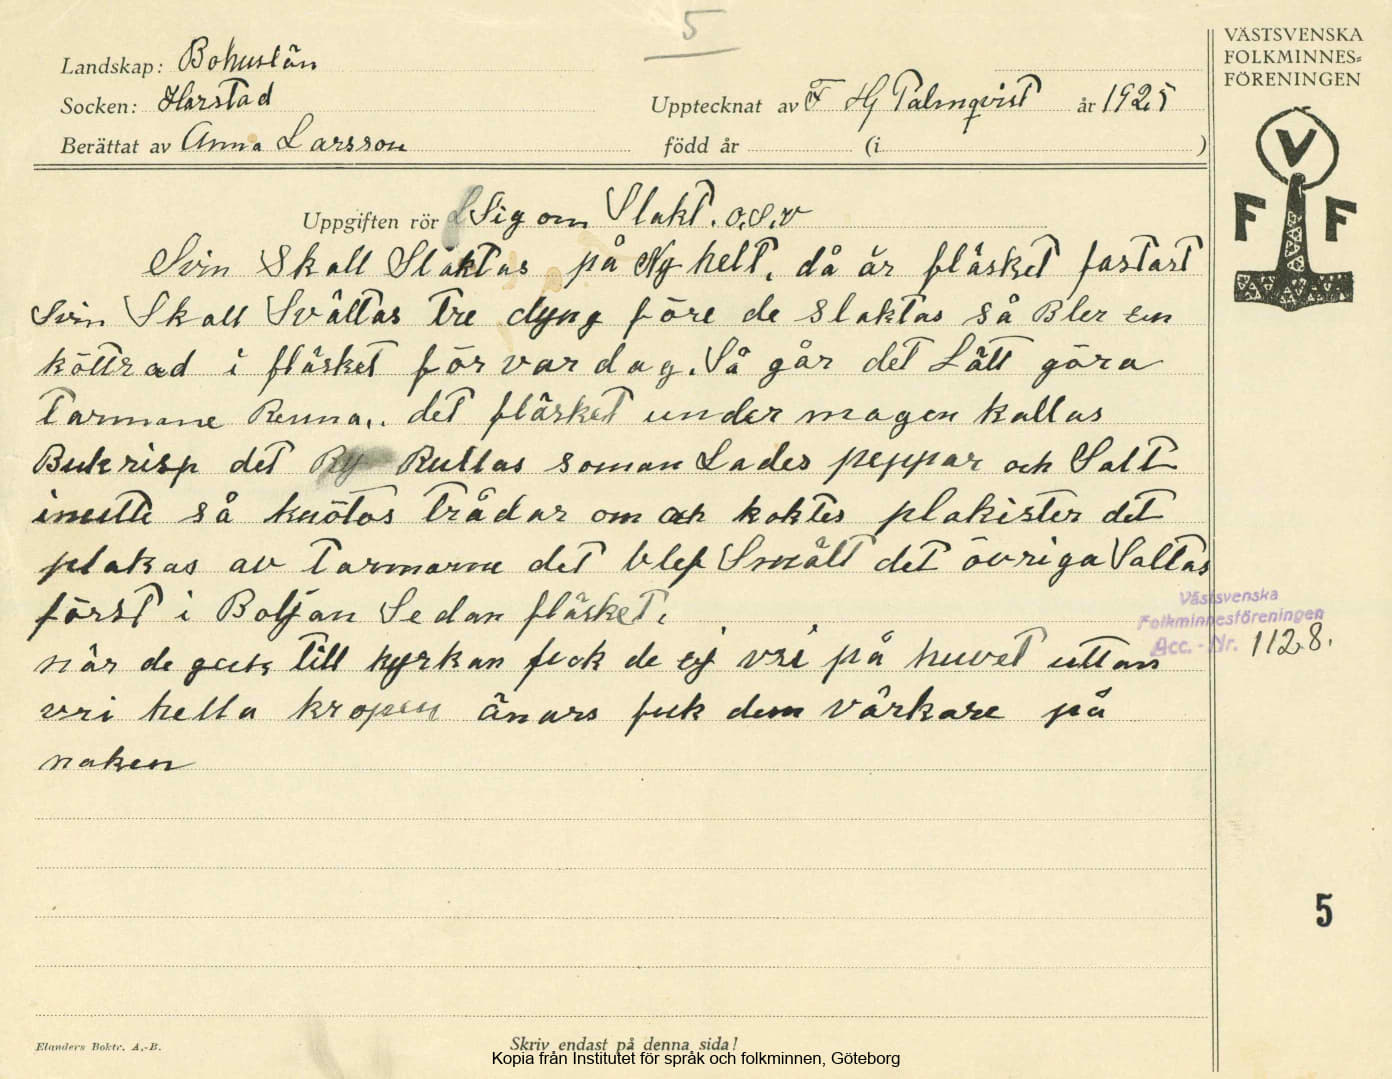 5
VÄSTSVENSKA
FOLKMINNES=
FÖRENINGEN
Landskap: Bohuslän
Socken: Harstad
Upptecknat av F Hj Palmqvist år 1925
Berättat av Anna Larsson född år (i )
VFF
Uppgiften rör Sig om Slakt. o.s.v
Svin Skall Slaktas på Ny helt, då är fläsket fastast
Svin Skall Svältas tre dyng före de slaktas så Bler en
köttrad i fläsket för var dag. Så går det Lätt göra
tarmane Renna,. det fläsket under magen kallas
Bukrisp det Rullas soman Lades peppar och Salt
inutti så knötos trådar om och koktes plakister det
plakas av tarmarne det blef Smält det övriga Saltas
först i Boljan Sedan fläsket.
når de geck till kyrkan feck de ej vri på huvet uttan
vri hella kropen änars fek dem värkare på
naken
Västsvenska
Folkminnesföreningen
Acc. - Nr. 1128.
5
Elanders Boktr. A.-B.
Skriv endast på denna sida!
Kopia från Institutet för språk och folkminnen, Göteborg